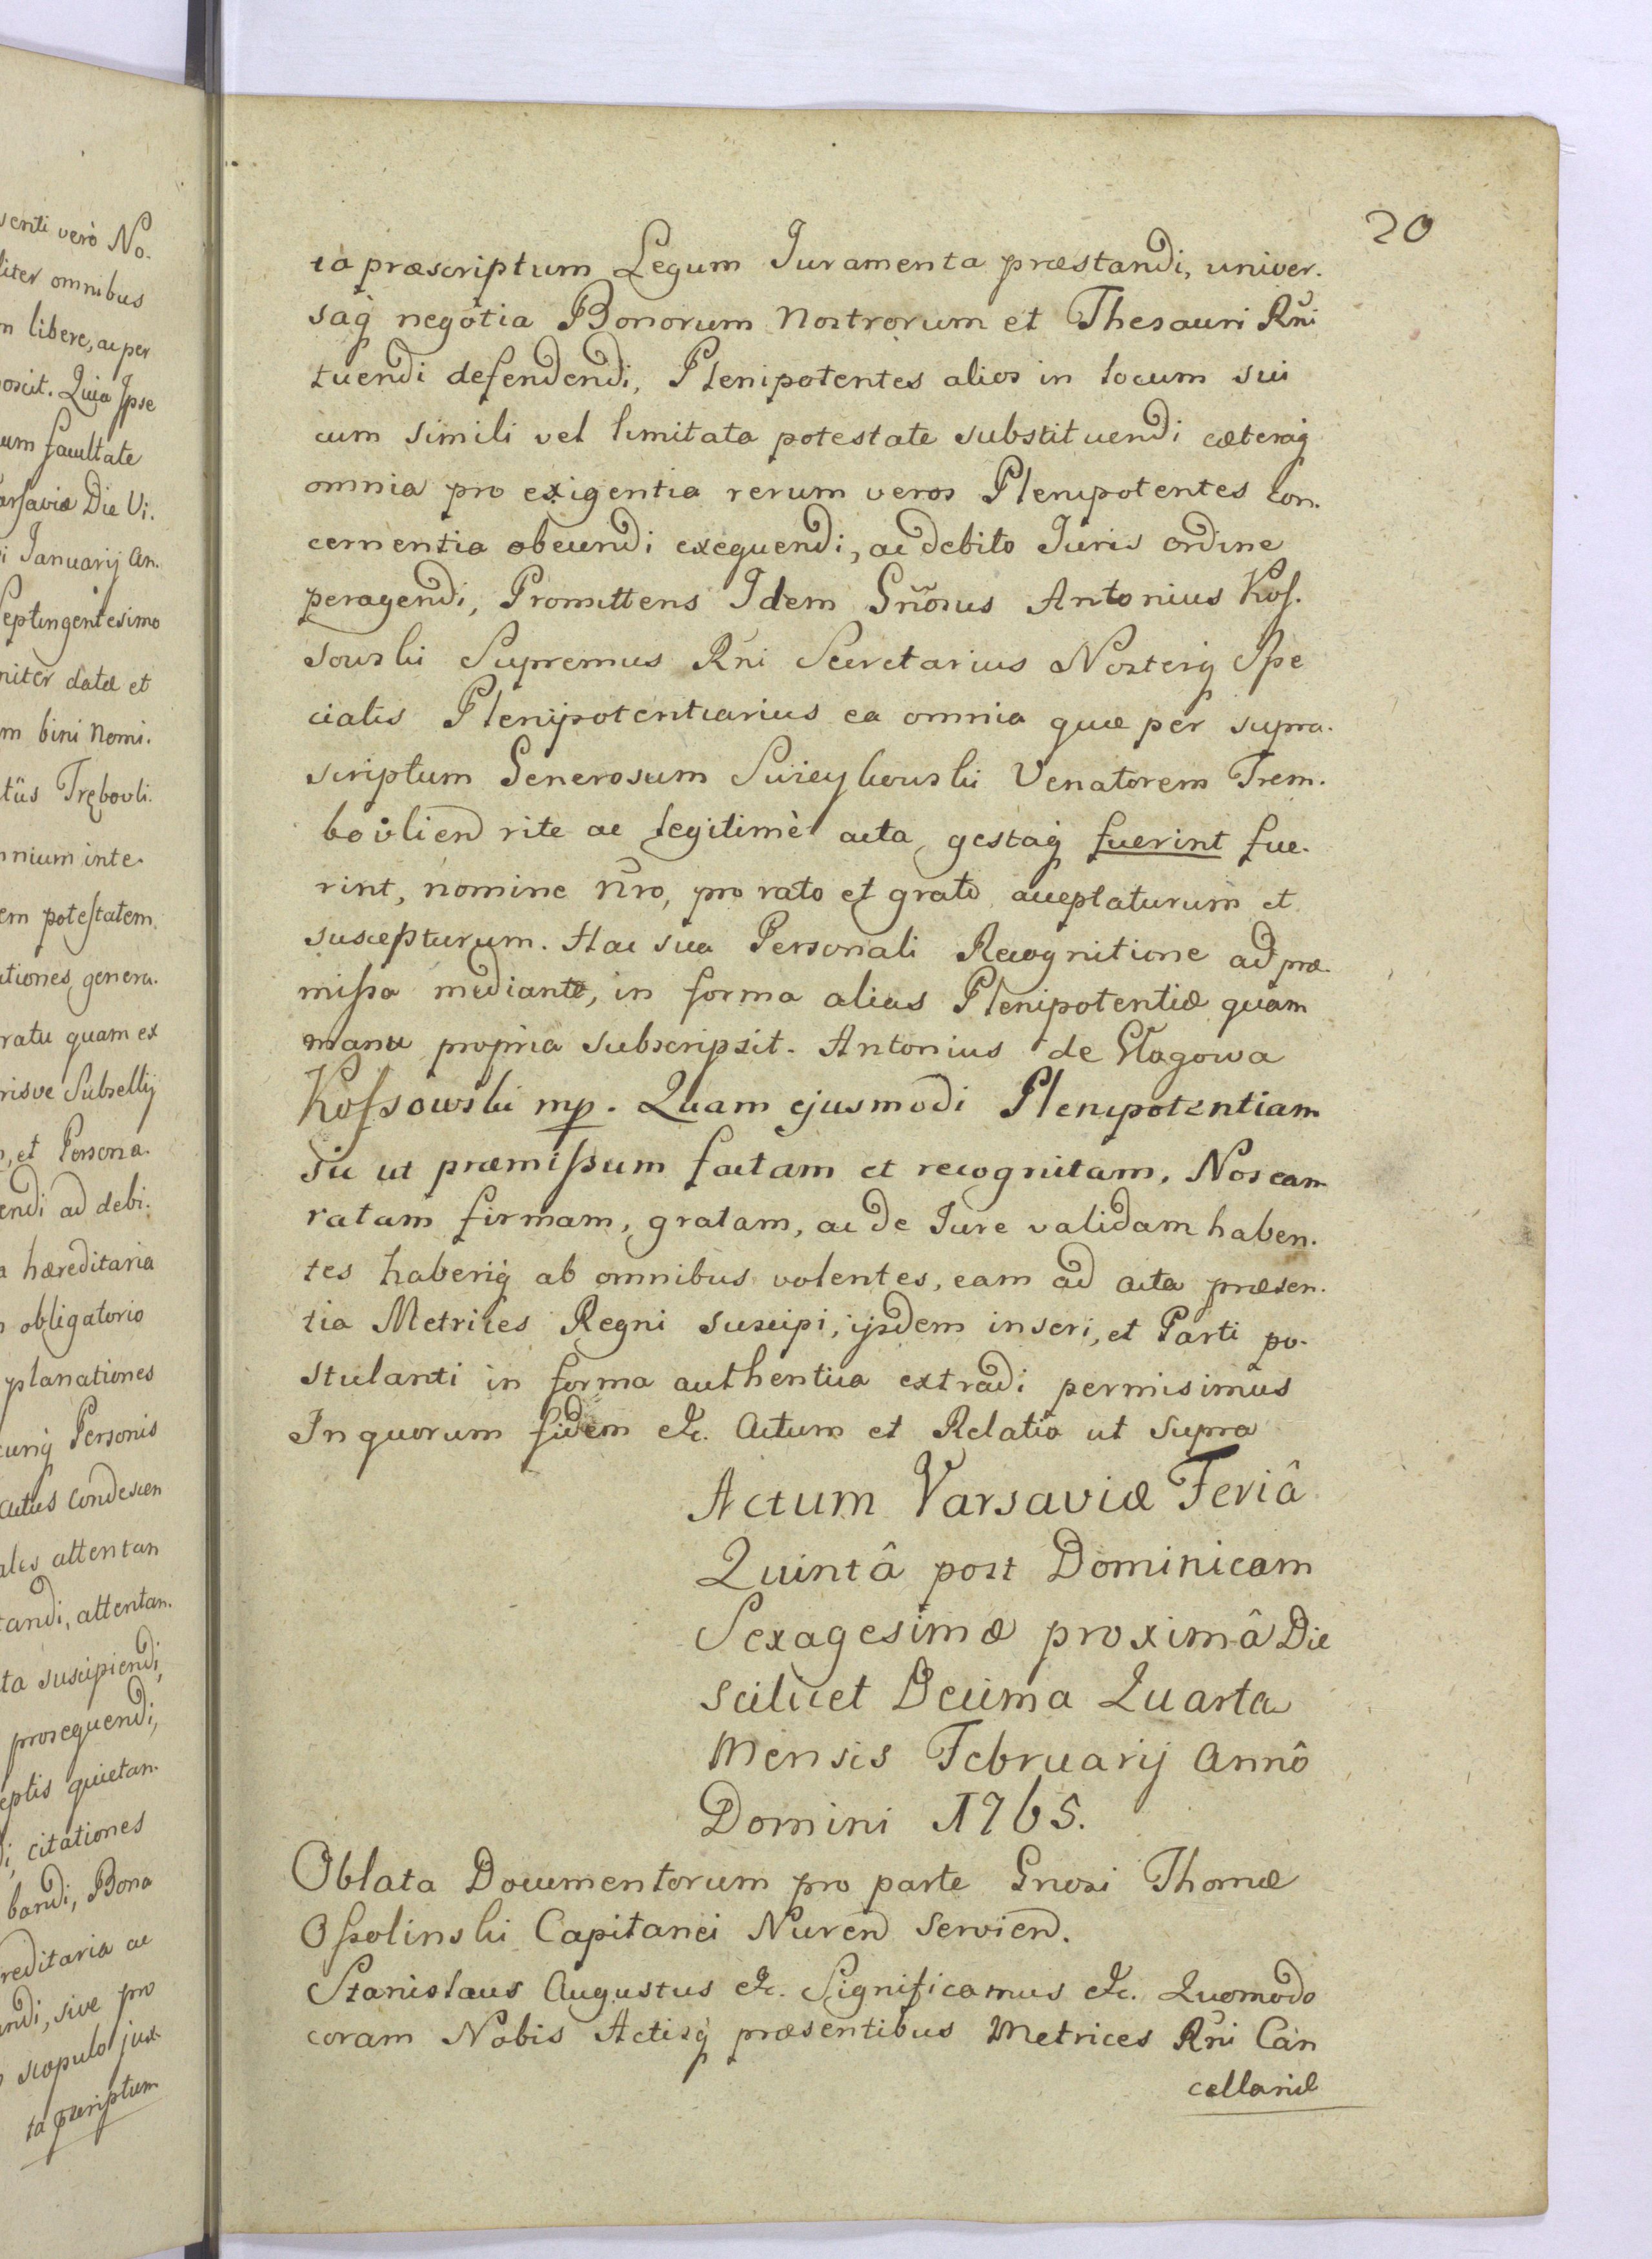 senti verò No.
liter omnibus
m libere, ac per
poscit. Quia Ipse
cum facultate
arsaviæ Die Vi.
i Januarij An.
Septingentesimo
niter datæ et
m bini nomi.
tüs Trębovli.
mnium inte.
em potestatem.
ationes, genera.
ratu quam ex
risve Subsellij
, et Persona.
endi ad debi.
a hæreditaria
obligatorio
planationes
cunq Personis
cutus condescen
ales attentan
tandi, attentan.
ta suscipiendi,
prosequendi,
eptis quietan.
di, citationes
bandi, Bona
reditaria ac
ndi, sive pro
scopulo jux.
ta præscriptum
20
ta præscriptum Legum Juramenta præstandi, univer.
saq negotia Bonorum Nostrorum et Thesauri Rni
tuendi defendendi, Plenipotentes alios in locum sui
cum simili vel limitata potestate substituendi cæteraq
omnia pro exigentia rerum veros Plenipotentes con.
cernentia obeundi exequendi, ac debito Juris ordine
peragendi, Promittens Idem Gnosus Antonius Kos.
sowski Supremus Rni Secretarius Nosterq Spe
cialis Plenipotentiarius ea omnia quæ per supra.
scriptum Generosum Venatorem Trem.
bovlien rite ac legitimè acta, gestaq fuerint fue.
rint, nomine nro, pro rato et grato acceptaturum et
suscepturum. Hac sua Personali Recognitione ad præ.
missa mediante, in forma alias Plenipotentiæ quam
manu propria subscripsit. Antonius de Głogowa
Kossowski mp. Quam ejusmodi Plenipotentiam
sic ut præmissum factam et recognitam, Nos eam
ratam firmam, gratam, ac de Jure validam haben.
tes haberiq ab omnibus volentes, eam ad acta præsen.
tia Metrices Regni suscipi, ijsdem inseri, et Parti po.
stulanti in forma authentica extradi permisimus
In quorum fidem etc. Actum et Relatio ut supra
Actum Varsaviæ Feriâ
Quintâ post Dominicam
Sexagesimæ proximâ Die
scilicet Decima Quarta
Mensis Februarij Annô
Domini 1765.
Oblata Documentorum pro parte Gnosi Thomæ
Ossolinski Capitanei Nuren servien.
Stanislaus Augustus etc. Significamus etc. Quomodo
coram Nobis Actisq præsentibus Metrices Rni Can
cellariæ